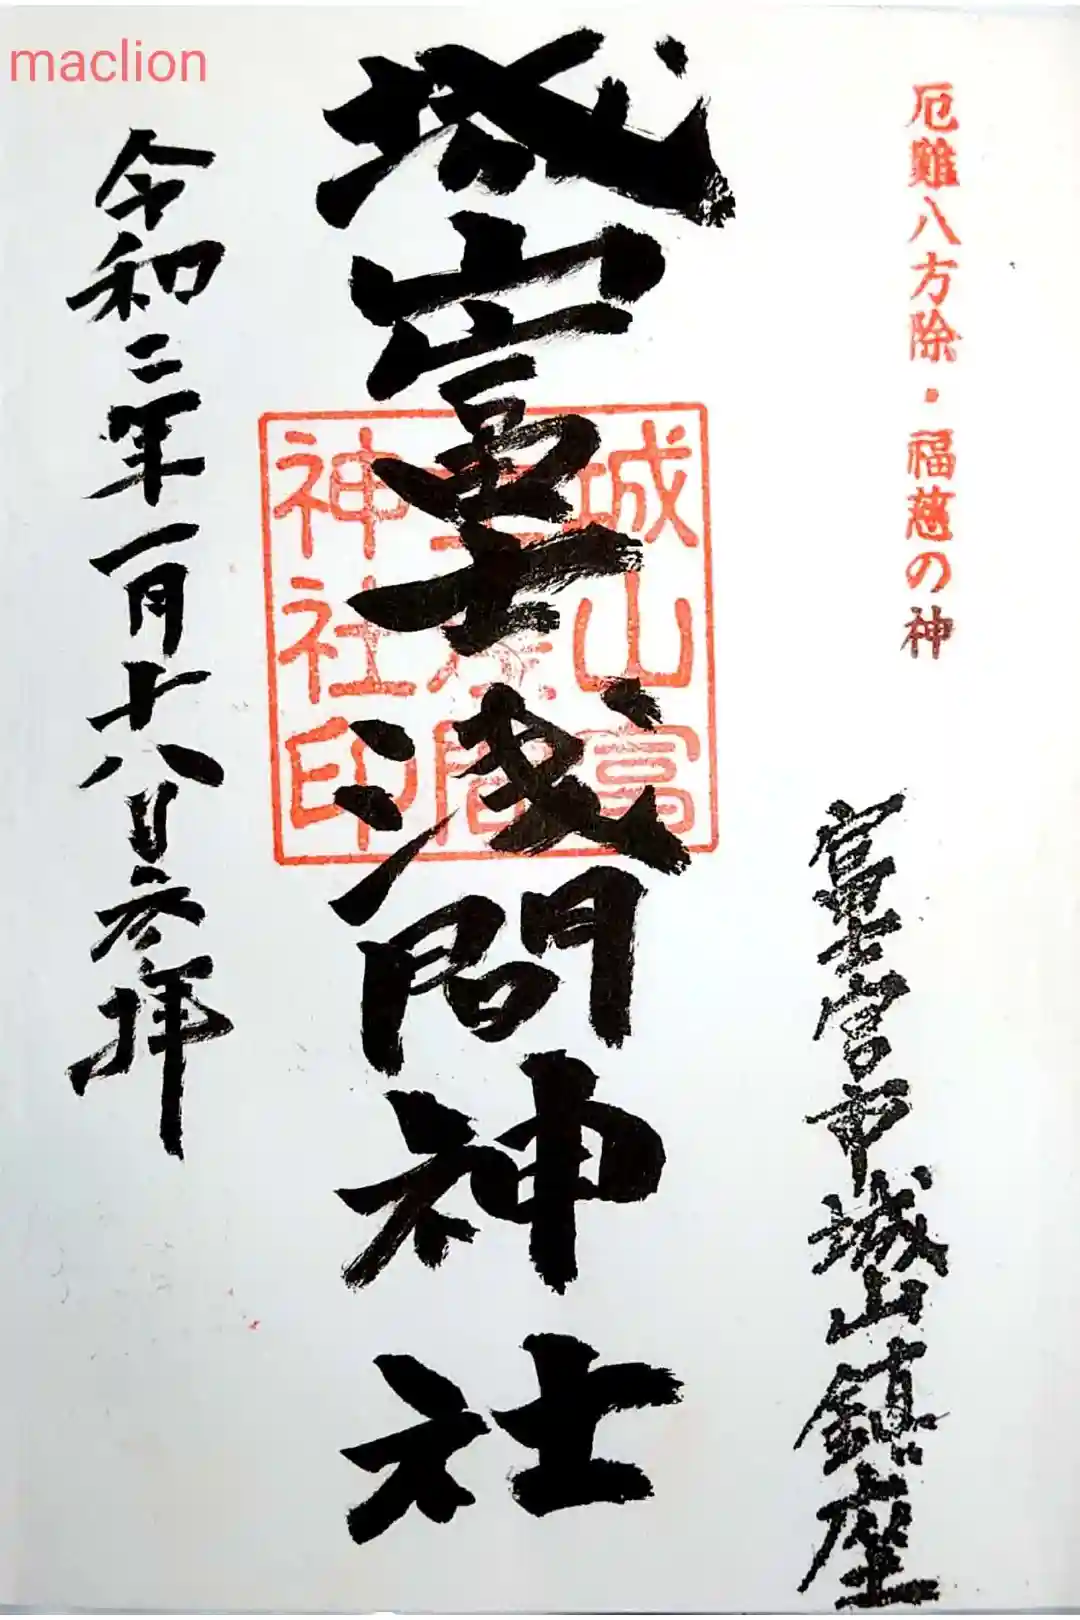 maclion
厄難八方除・福慈の神
富士宮市城山鎮座
城山富士浅間神社
城山富
士浅間
神社印
令和二年一月十八日参拝